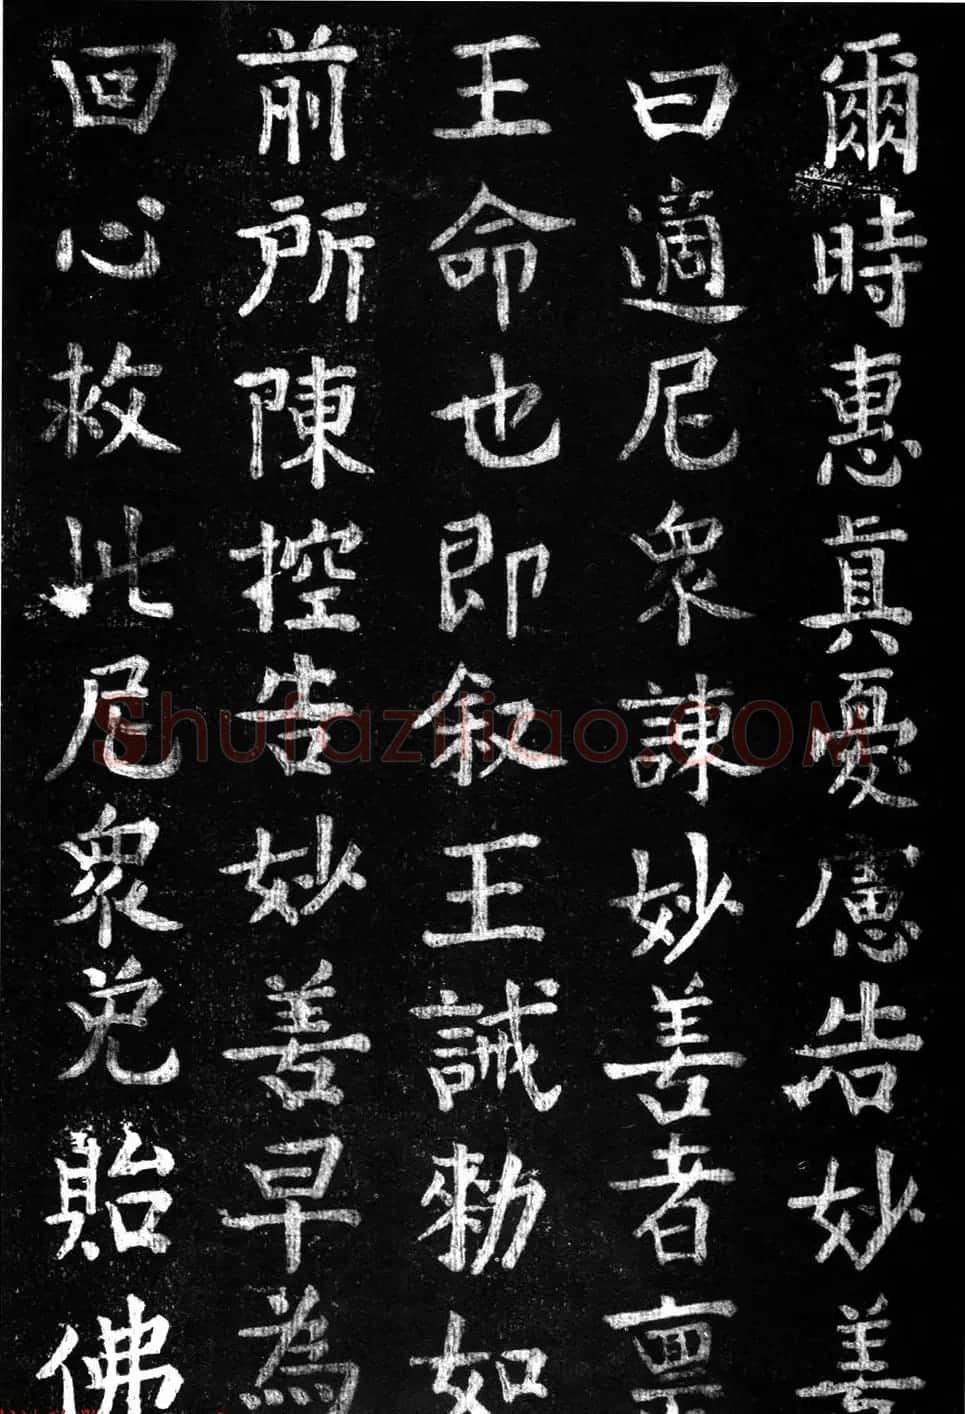 爾時惠真憂慮告妙善
曰適尼衆諫妙善者禀
王命也即叙王誡勅如
前所陳控告妙善早為
回心救此尼衆免貽佛
Shufaziliao.COM